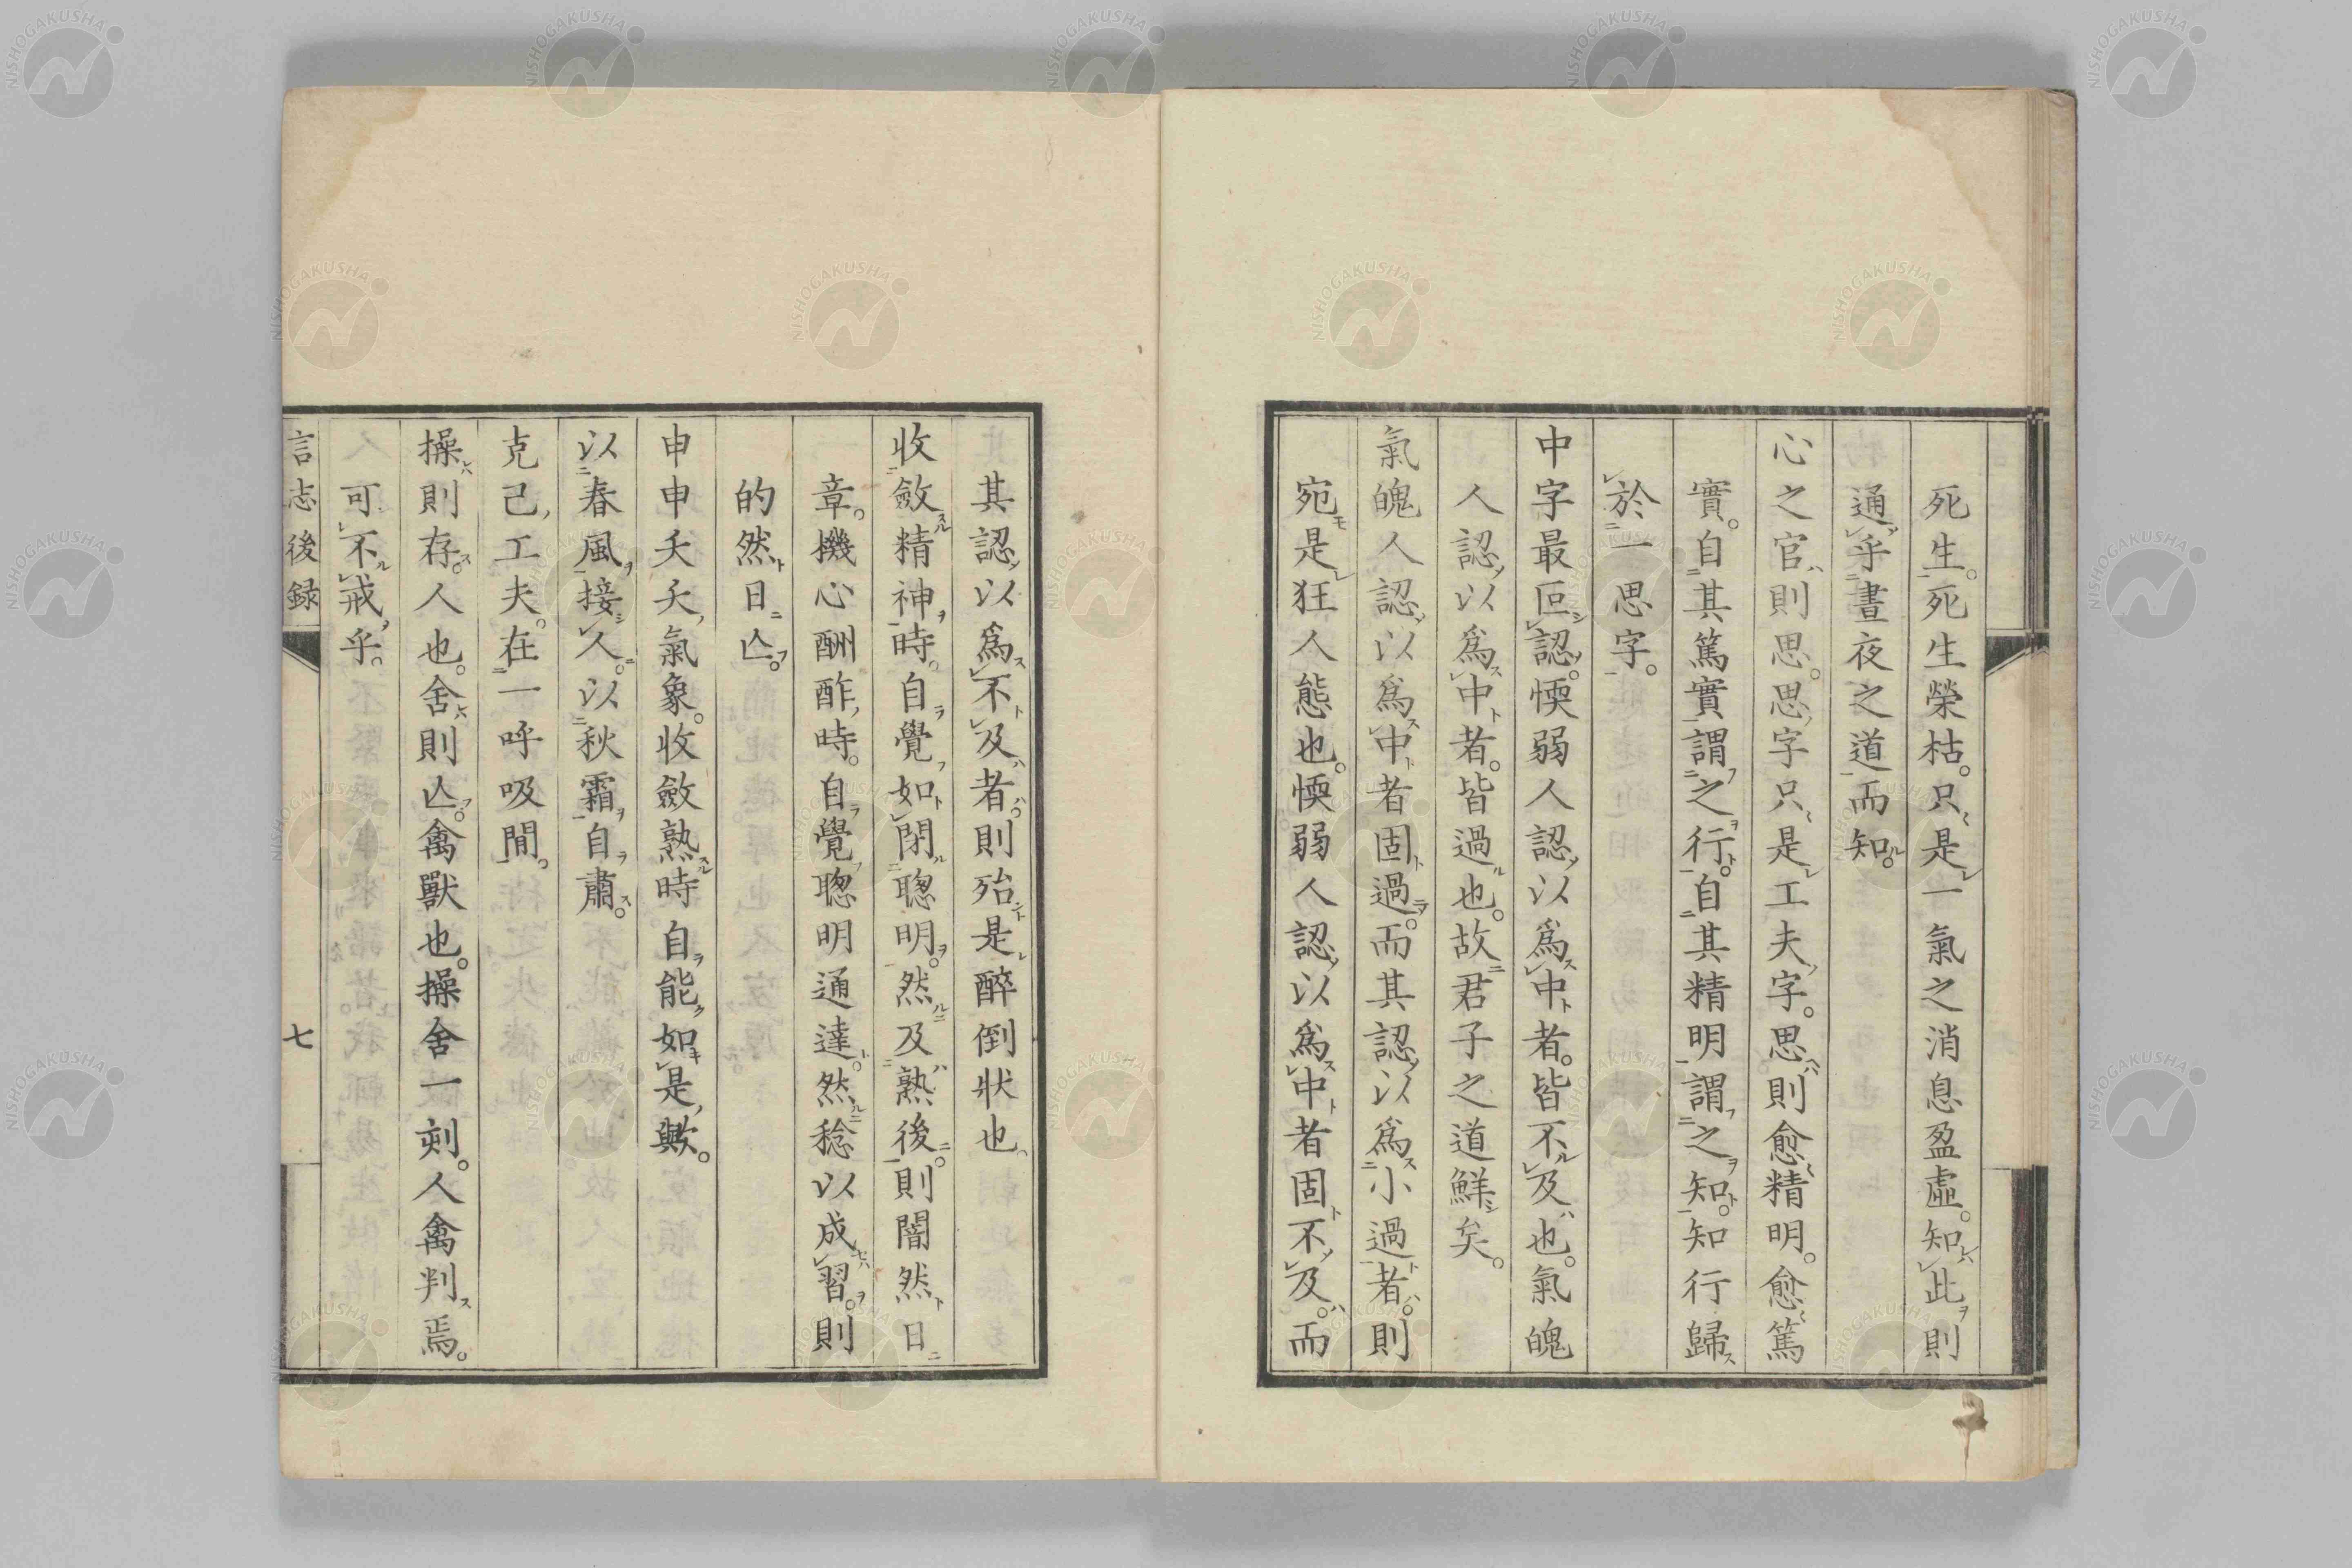 死生。死生榮枯。只是一氣之消息盈虛。知此則
通乎晝夜之道而知。
心之官則思。思字只是工夫字。思則愈精明。愈篤
實。自其篤實謂之行。自其精明謂之知。知行歸
於一思字。
中字最叵認。愞弱人認以爲中者。皆不及也。氣魄
人認以爲中者。皆過也。故君子之道鮮矣。
氣魄人認以爲中者固過。而其認以爲小過者。則
宛是狂人態也。愞弱人認以爲中者固不及。而
其認以爲不及者。則殆是醉倒狀也
收斂精神時。自覺如閉聰明。然及熟後。則闇然日
章。機心酬酢時。自覺聰明通達。然稔以成習。則
的然日亾。
申申夭夭氣象。收斂熟時自能如是歟。
以春風接人。以秋霜自肅。
克己工夫。在一呼吸間。
操則存。人也。舍則亾。禽獸也。操舍一刻。人禽判焉。
可不戒乎。
言志後録 七
NISHOGAKUSHA